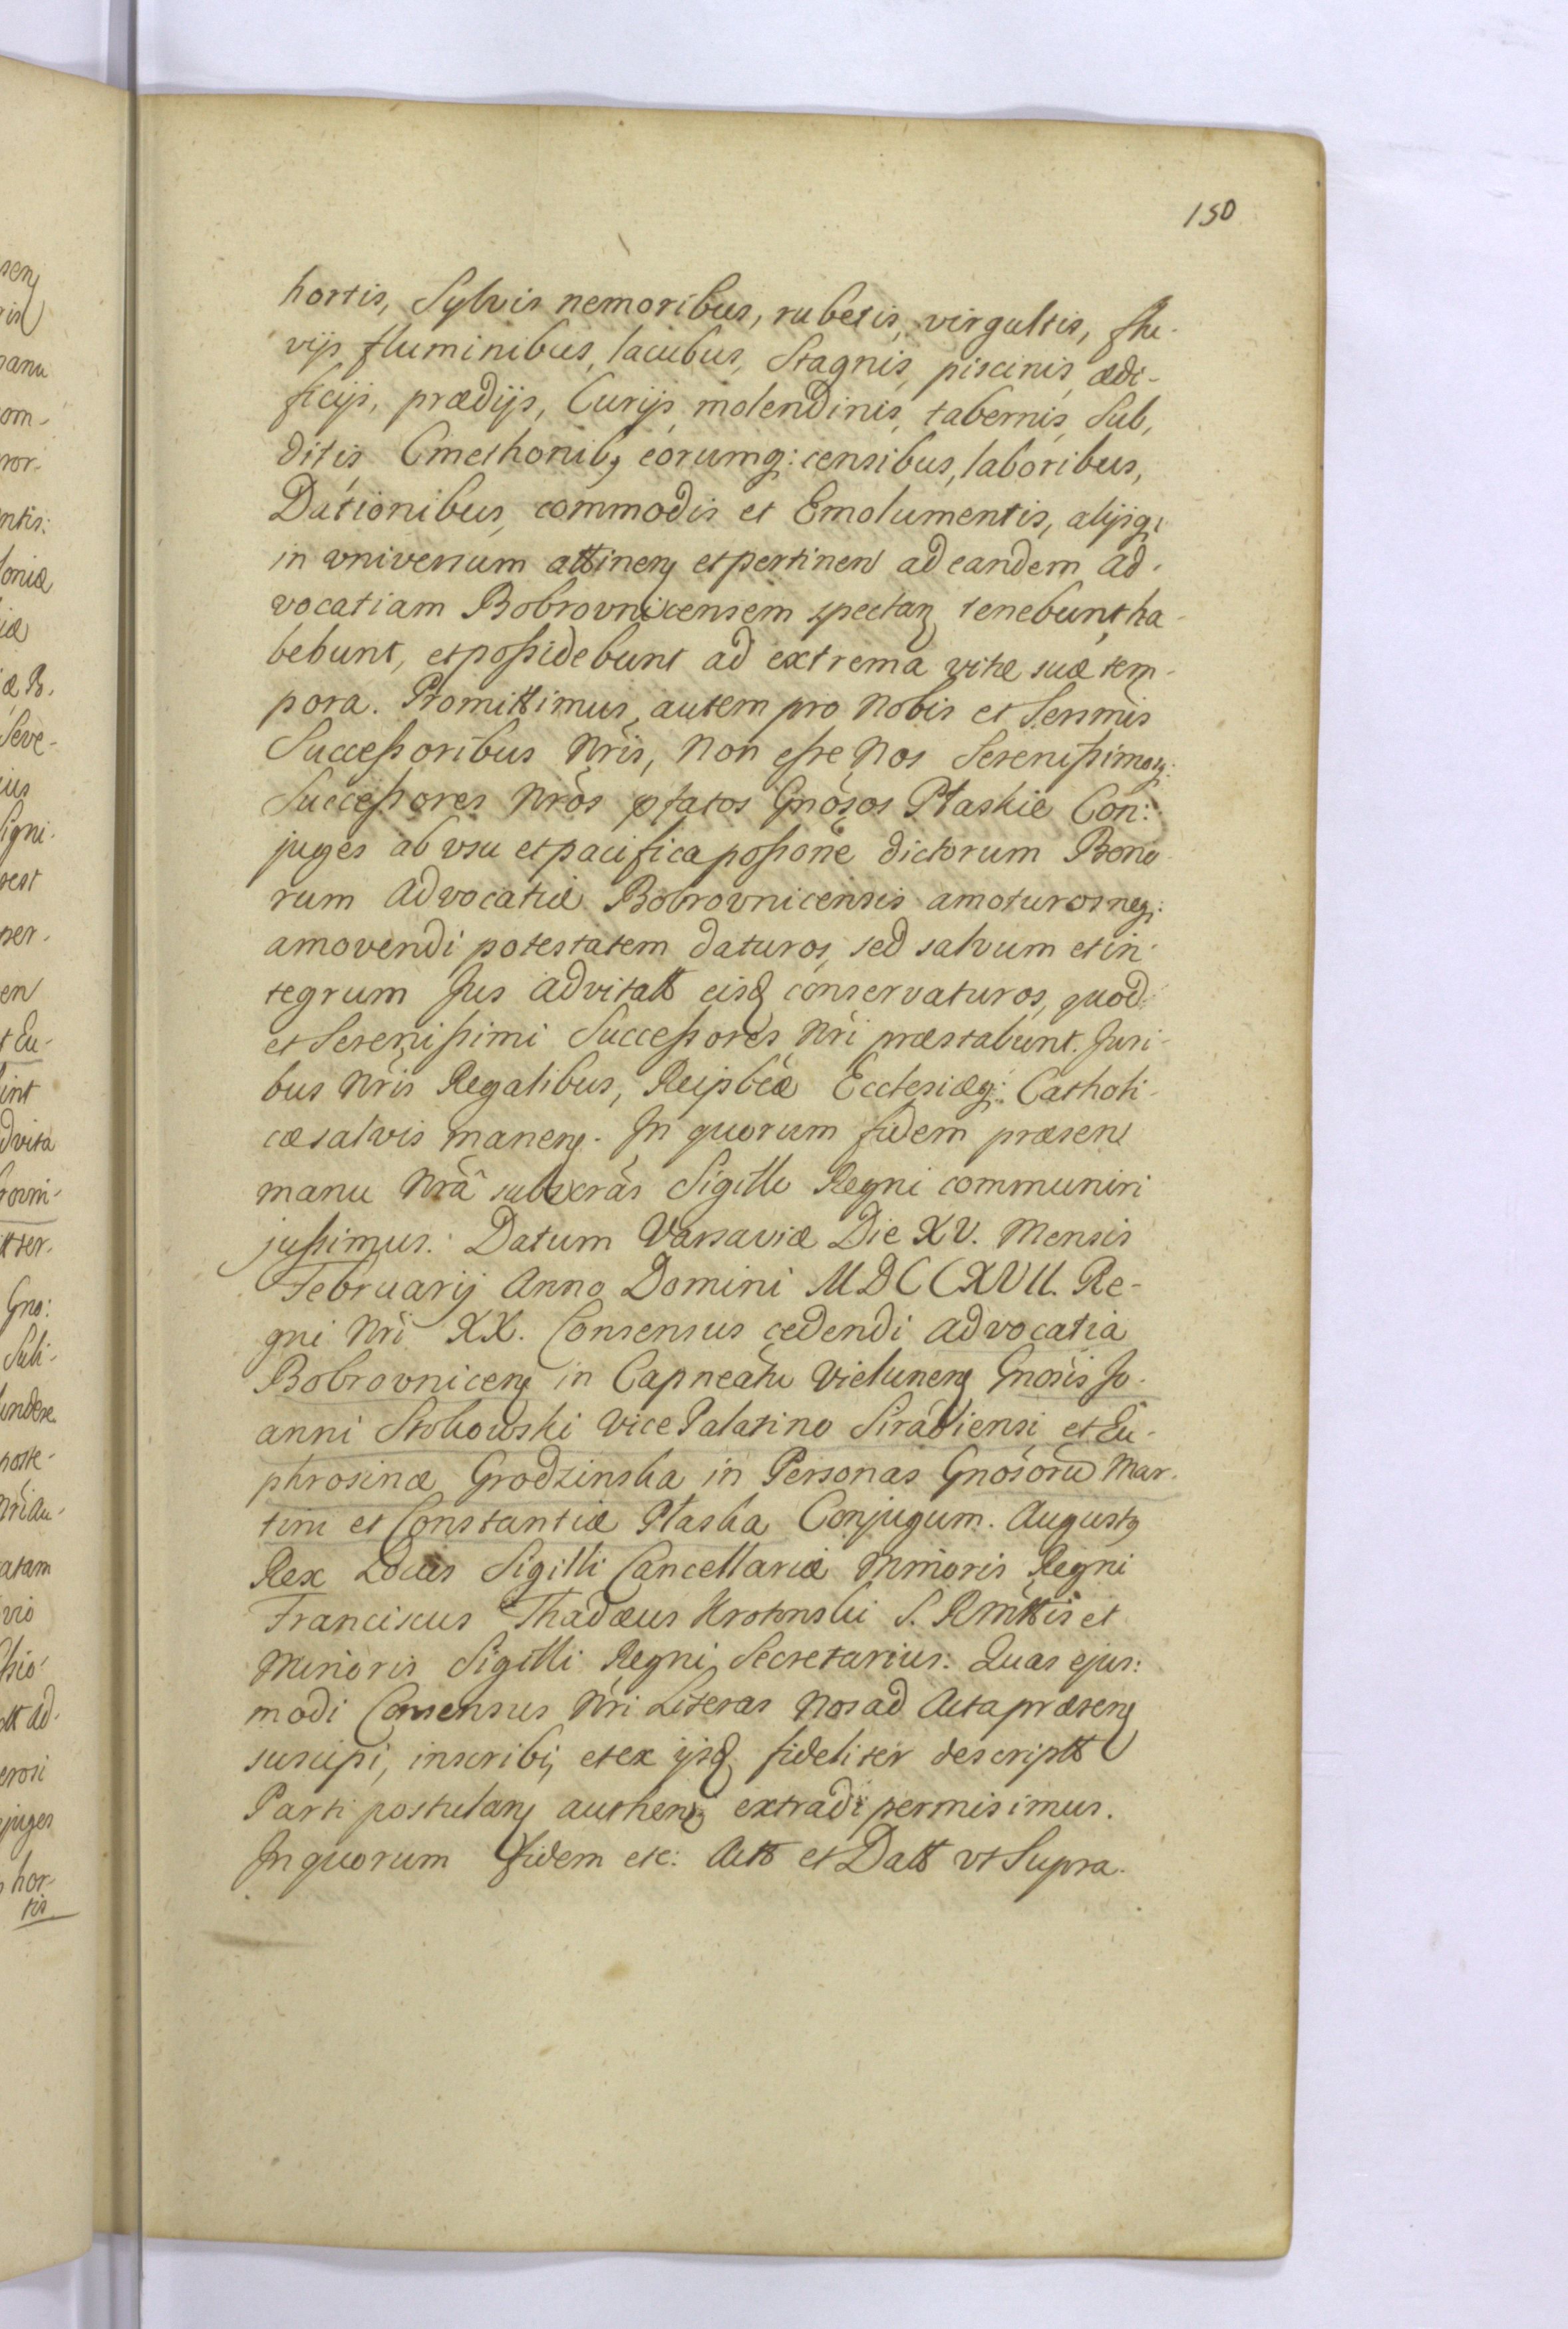 150
hortis, Sylvis nemoribus, rubetis, virgultis, flu-
vijs fluminibus, lacubus, Stagnis, piscinis, ædi-
ficijs, prædijs, Curijs molendinis, tabernis, Sub,
ditis Cmethonibq eorumq: censibus, laboribus,
Dationibus, commodis et Emolumentis, alijsq,
in vniversum attinen et pertinen ad eandem Ad-
vocatiam Bobrovnicensem spectan tenebunt, ha-
bebunt, et possidebunt ad extrema vitæ suæ tem-
pora. Promittimus autem pro Nobis et Serñmis
Successoribus Nr̃is, Non esse Nos Serenissimosq:
Successores Nr̃os pfatos Gñosos Płaskie Con:
juges ab vsu et pacifica possoñe dictorum Bono-
rum Advocatiæ Bobrovnicensis amoturos neq:
amovendi potestatem daturos, sed salvum et in-
tegrum Jus advitatt eisd conservaturos, quod
et Serenissimi Successores Nr̃i præstabunt. Juri-
bus Nr̃is Regalibus, Reipb̃cæ Ecclesiæq: Catholi-
cæ salvis manen. In quorum fidem præsen
manu Nr̃a subscrãs Sigillo Regni communiri
jussimus. Datum Varsaviæ Die XV. Mensis
Februarij Anno Domini MDCCXVII. Re-
gni Nr̃i XX. Consensus cedendi Advocatia
Bobrovnicen in Capneatu Vielunen Gnosis Jo-
anni Stokowski Vice Palatino Siradiensi et Eu-
phrosinæ Grodzinska in Personas Gnosorũ Mar-
tini et Constantiæ Płaska Conjugum. Augustq
Rex Locus Sigilli Cancellariæ Minoris Regni
Franciscus Thadæus S. RMttis et
Minoris Sigilli Regni Secretarius: Quas ejus:
modi Consensus Nr̃i Literas Nos ad Acta præsen
suscipi, inscribi, et ex ijsd fideliter descriptt
Parti postulan authen extradi permisimus.
In quorum fidem etc: Actt et Datt vt Supra.